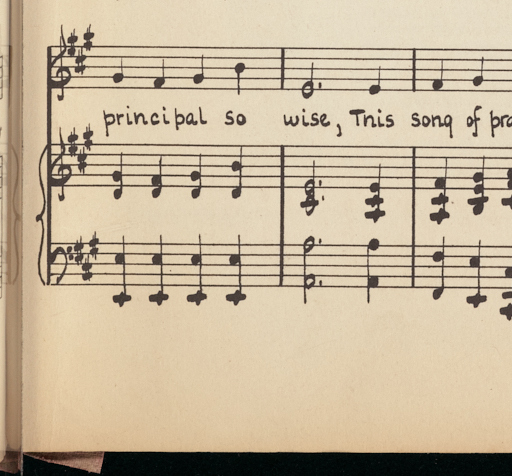 principal so wise, This song of pra